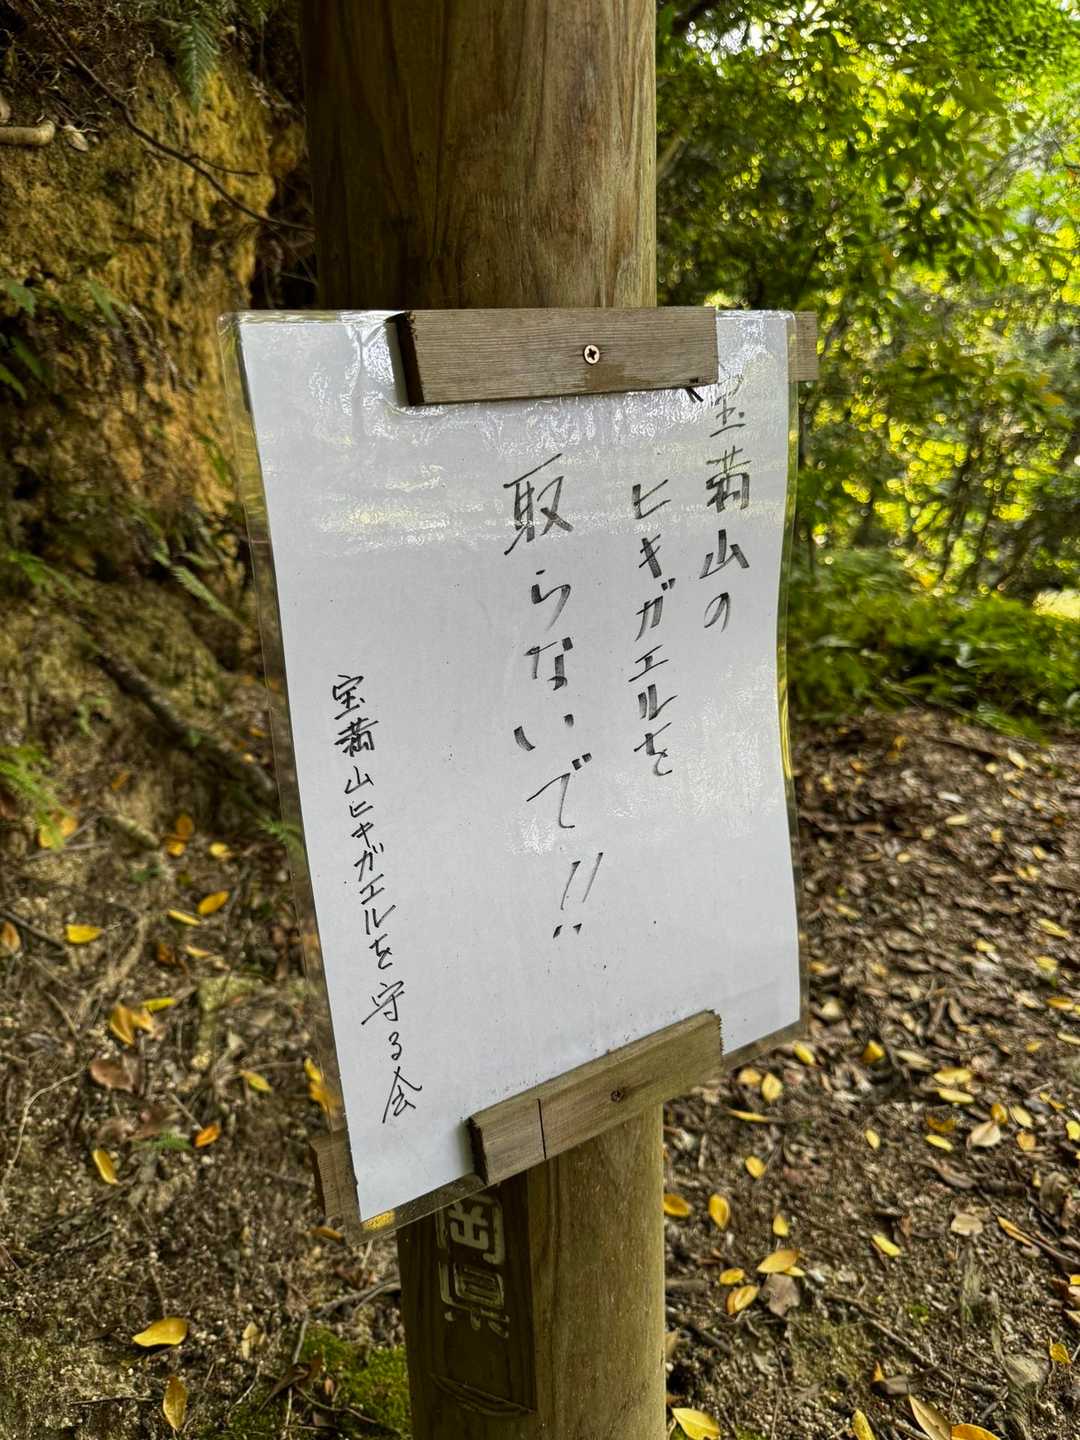 宝満山の
ヒキガエルを
取らないで!!
宝満山ヒキガエルを守る会
岡県